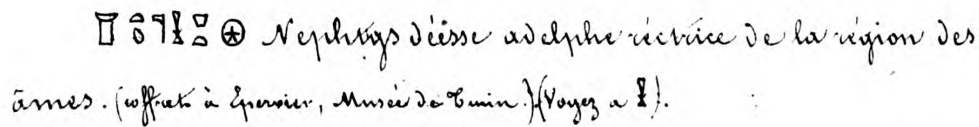 Nephthys déesse adelphe réctrice de la région des
âmes. (coffrets à Epervier, Musée de Turin.) (Voyez a ).